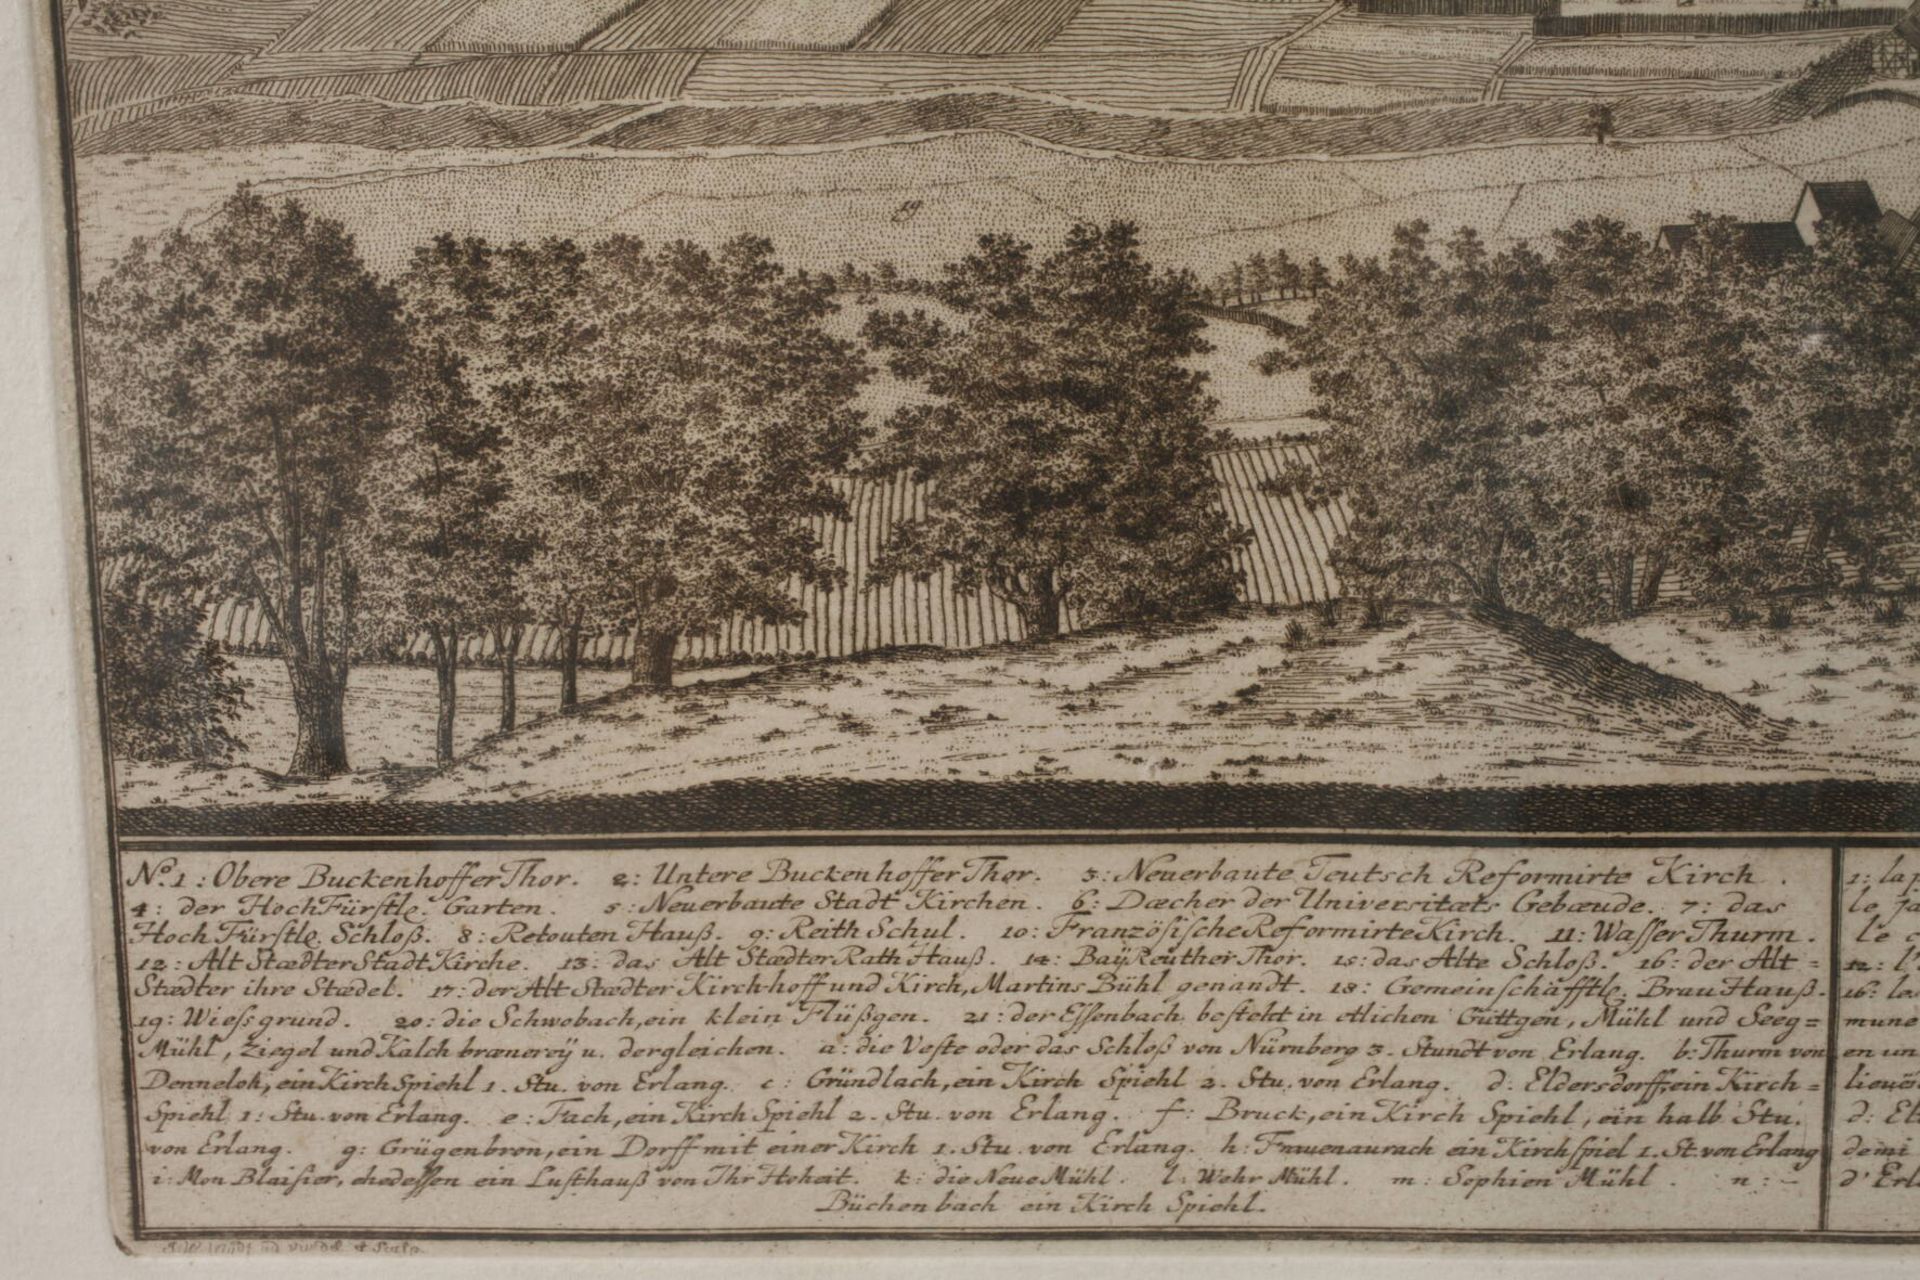 19
No. 1 : Obere Buckenhoffer Thor. 2: Untere Buckenhoffer Thor. 3: Neuerbaute Teutsch Reformirte Kirch.
4: der HochFürstle. Garten. 5: Neuerbaute Stadt Kirchen. 6: Dæcher der Universitæts Gebæude. 7: das
Hoch Fürstle. Schloß. 8: Retouten Hauß. 9: Reith Schul. 10: Französische Reformirte Kirch. 11: Wasser Thurm.
12: Alt Stædter Stadt Kirche. 13: das Alt Stædter Rath Hauß. 14: BaÿReuther Thor. 15: das Alte Schloß. 16: der Alt=
Stædter ihre Stædel. 17: der Alt Stædter Kirch-hoff und Kirch, Martins Bühl genandt. 18: Gemeinschäfftle. Brau Hauß.
19: Wiesgrund. 20: die Schwobach, ein klein Flüßgen. 21: der Essenbach besteht in etlichen Güttgen, Mühl und Seeg=
Mühl, Ziegel und Kalch brænereÿ u. dergleichen. a: die Veste oder das Schloß von Nürnberg 3. Stundt von Erlang. b: Thurm von
Denneloh, ein Kirch Spiehl 1. Stu. von Erlang. c: Gründlach, ein Kirch Spiehl 2. Stu. von Erlang. d: Eldersdorff, ein Kirch=
Spiehl 1: Stu. von Erlang. e: Fach, ein Kirch Spiehl 2. Stu. von Erlang. f: Bruck, ein Kirch Spiehl, ein halb Stu.
von Erlang. g: Grügenbron, ein Dorff mit einer Kirch 1. Stu. von Erlang. h: Frauenaurach ein Kirchspiel 1. St. von Erlang
i: Mon Blaisier, ehedessen ein Lusthauß von Ihr Hoheit. k: die Neue Mühl. l: Wehr Mühl. m: Sophien Mühl. n: -
Büchenbach ein Kirch Spiehl.
1: la
le
le
12: l'
16: les
mune
en un
lieuë
d:
demi
d'Erl
del. et Sculp.